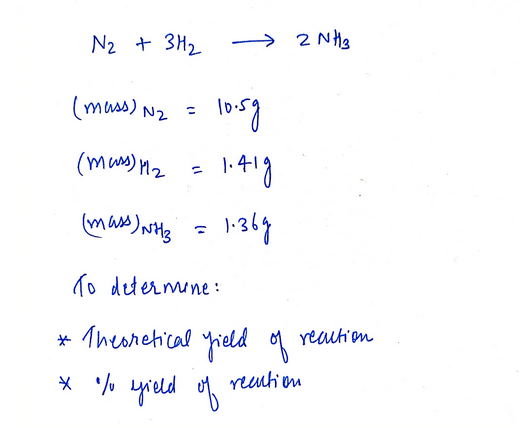 N2 + 3H2 ⟶ 2 NH3
(mass) N2 = 10.5g
(mass) H2 = 1.41g
(mass) NH3 = 1.36g
To determine:
* Theoretical yield of reaction
* % yield of reaction